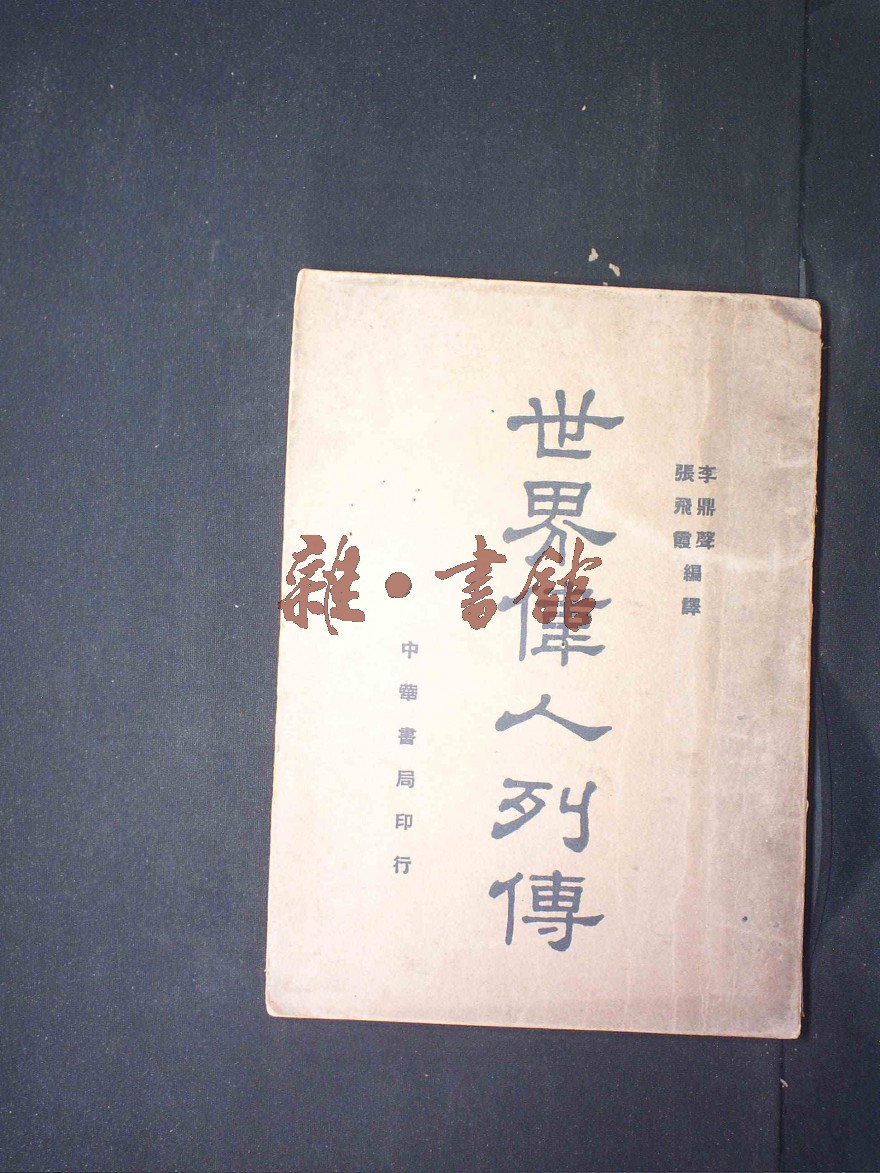 李鼎聲
張飛霞
編譯
世界偉人列傳
中華書局印行
雜·書館